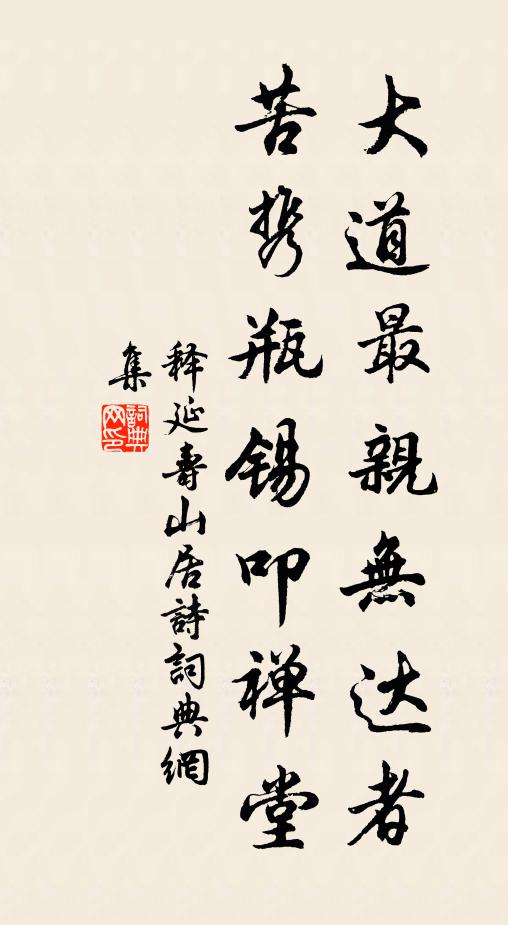 大道最親無达者
苦携瓶锡叩禅堂
释延壽山居詩詞典網
集
詞典網印